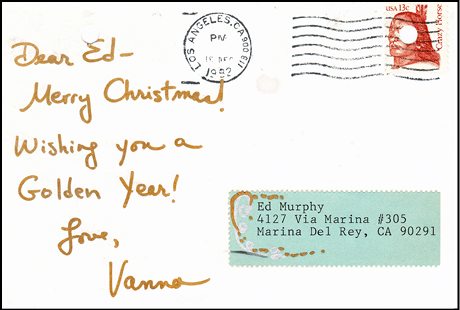 Dear Ed-
Merry Christmas!
Wishing you a
Golden Year!
Love,
Vanna
LOS ANGELES, CA
PM
1982
USA 13c
Crazy Horse
Ed Murphy
4127 Via Marina #305
Marina Del Rey, CA 90291